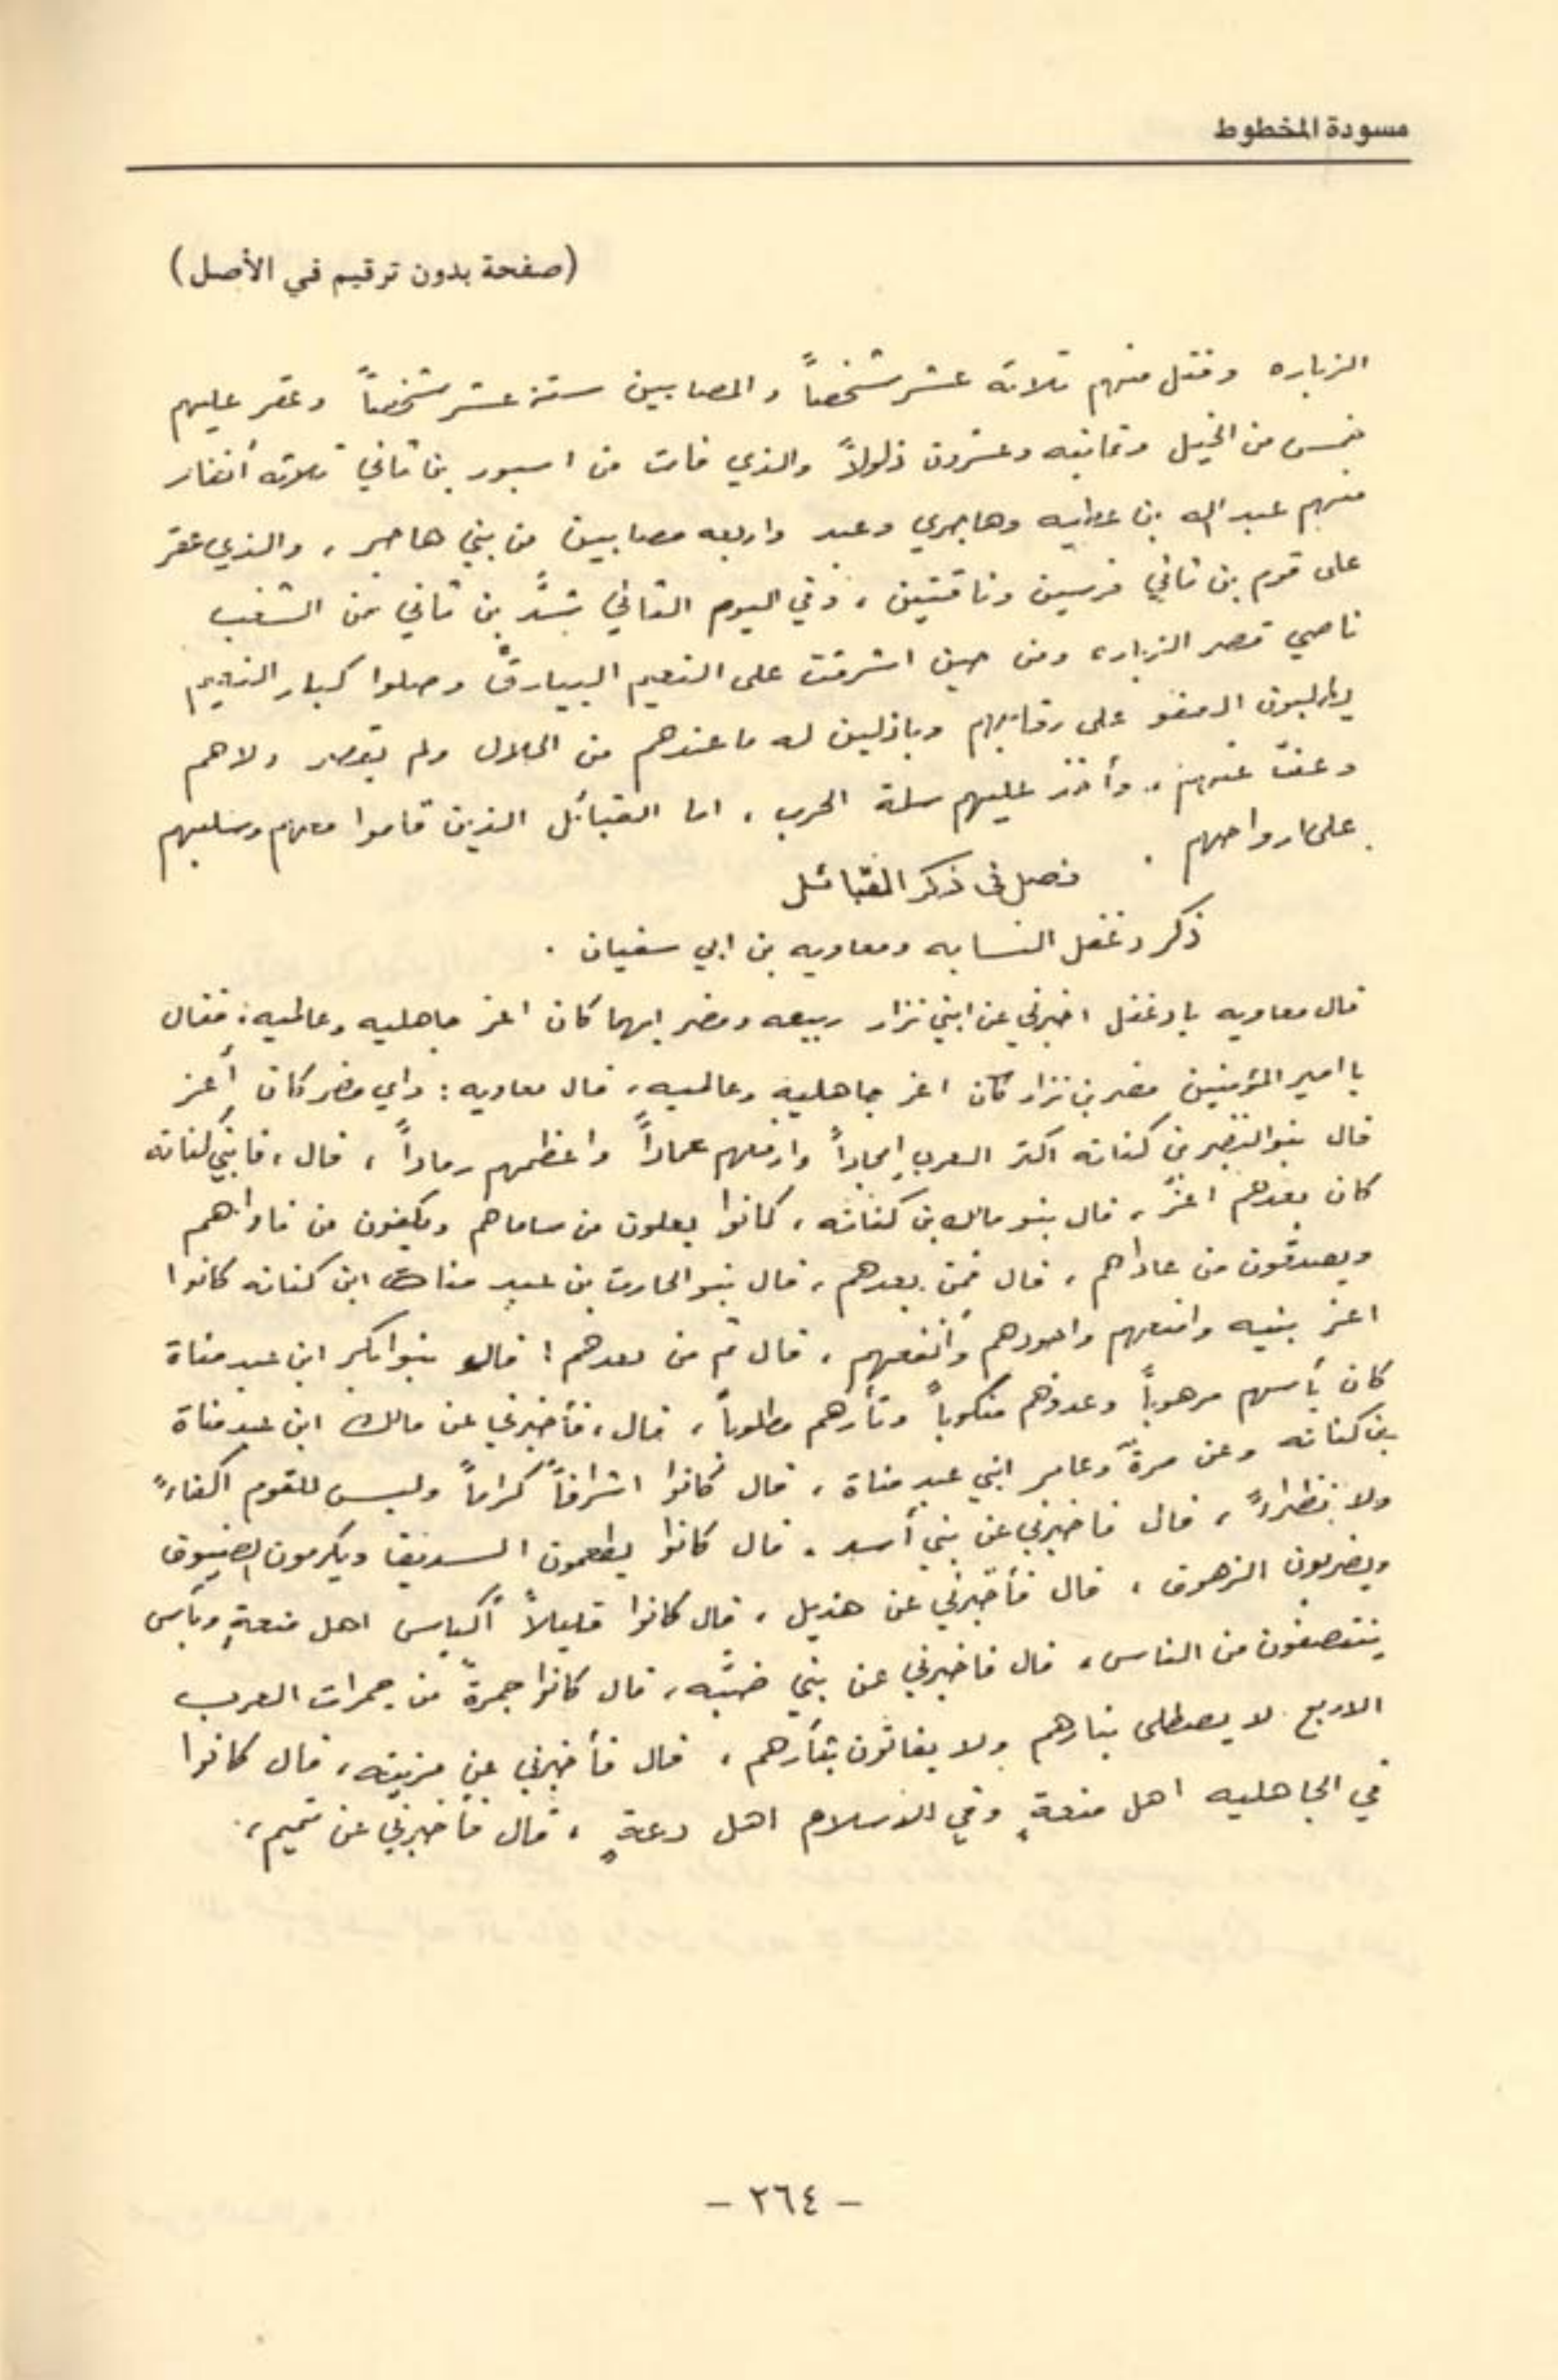 مسودة المخطوط
(صفحة بدون ترقيم في الأصل)
الزباره وقتل منهم ثلاثة عشر شخصاً والمصابين ستة عشر شخصاً وعقر عليهم
خمس من الخيل وثمانيه وعشرون ذلولاً والذي فات من اسبور بن ثاني ثلاثه أنفار
منهم عبد الله بن عطيه وهاجري وعبد واربعه مصابين من بني هاجر، والذي عقر
على قوم بن ثاني فرسين وناقتين، وفي اليوم الثاني شدَّ بن ثاني من الشغب
ناصي قصر الزباره ومن حين اشرفت على النعيم البيارق وصلوا كبار النعيم
يطلبون العفو على رقابهم وباذلين له ما عندهم من الحلال ولم يقصر ولاهم
وعفى عنهم، وأخذ عليهم سلة الحرب، اما القبائل الذين قاموا معهم وسلبهم
على ارواحهم.
فصل في ذكر القبائل
ذكر دغفل النسابه ومعاويه بن ابي سفيان.
قال معاويه يا دغفل اخبرني عن ابني نزار ربيعه ومضر ايهما كان اعز جاهليه وعالميه؛ فقال
يا امير المؤمنين مضر بن نزار كان اعز جاهلية وعالميه، قال معاويه: واي مضر كان أعز
قال بنو النضر بن كنانه اكثر العرب امجاداً وارفعهم عماداً واعظمهم رماداً، قال، فاي بني كنانه
كان بعدهم اعزّ، قال بنو مالك بن كنانه، كانوا يعلون من ساماهم ويكفون من ناداهم
ويصدقون من عاداهم، قال فمن بعدهم، قال بنو الحارث بن عبد مناة ابن كنانه كانوا
اعز بنيه وامنعهم واجودهم وأنفعهم، قال ثم من بعدهم! قال بنو ابكر ابن عبد مناة
كان بأسهم مرهوباً وعدوهم منكوباً وثأرهم مطلوباً، قال، فأخبرني عن مالك ابن عبد مناة
بن كنانه وعن مرةّ وعامر ابني عبد مناة، قال كانوا اشرافاً كراماً وليس للقوم اكفاءً
ولا نظراءً، قال فاخبرني عن بني أسد. قال كانوا يطعمون السديف ويكرمون الضيوف
ويضربون الزحوف، قال فأخبرني عن هذيل، قال كانوا قليلاً أكياس اهل منعةٍ وبأس
ينتصفون من الناس، قال فاخبرني عن بني ضبَّه، قال كانوا جمرةً من جمرات العرب
الاربع لا يصطلى بنارهم ولا يفاتون بثأرهم، قال فأخبرني عن مزينه، قال كانوا
في الجاهليه اهل منعةٍ وفي الاسلام اهل دعةٍ، قال فأخبرني عن تميم،
– ٢٦٤ –